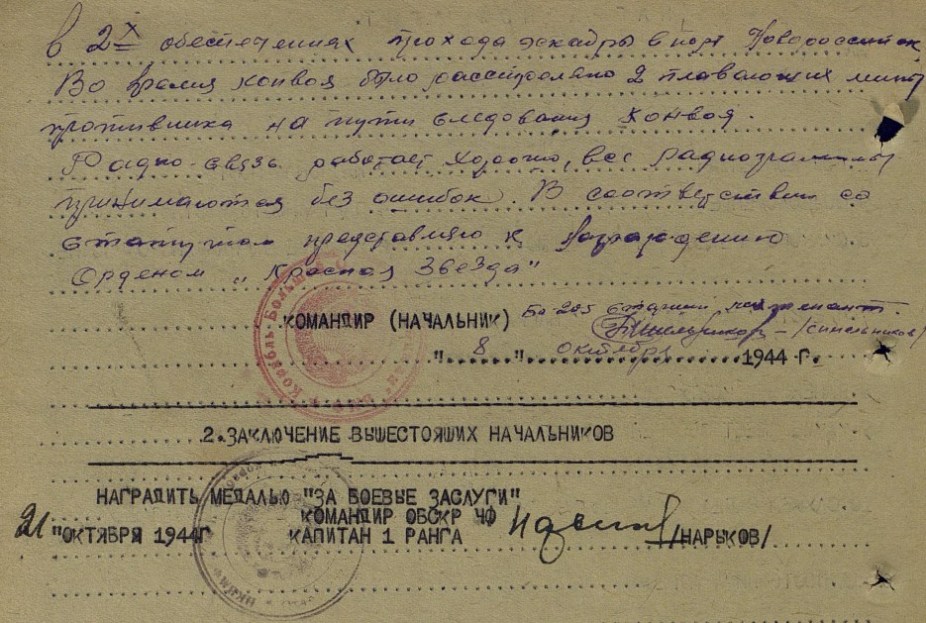 в 2х обеспечениях прохода эскадры в порт Новороссийск
Во время конвоя было расстреляно 2 плавающих мины
противника на пути следования конвоя.
Радио-связь работает хорошо, все радиограммы
принимаются без ошибок. В соответствии со
статутом представляю к награждению
Орденом „Красная Звезда"
КОМАНДИР (НАЧАЛЬНИК) старший лейтенант
(Синельников)
"8" октября 1944 г.
2. ЗАКЛЮЧЕНИЕ ВЫШЕСТОЯШИХ НАЧАЛЬНИКОВ
НАГРАДИТЬ МЕДАЛЬЮ "ЗА БОЕВЫЕ ЗАСЛУГИ"
КОМАНДИР ОВСКР ЧФ
21 "ОКТЯБРЯ 1944Г КАПИТАН 1 РАНГА /НАРЫКОВ/